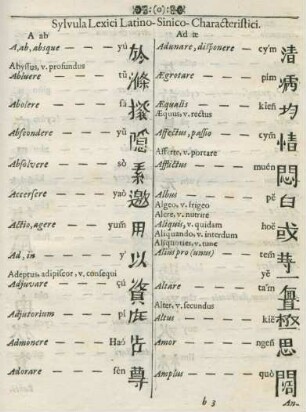 (o)
Sylvula Lexici Latino-Sinico-Characteristici.
A ab
A, ab, absque — yû 於
Abyssus, v. profundus
Abluere — 滌
Abolere
Abscondere — yù 隱
Absolvere — sò 素
Accersere — yaò 邀
Actio, agere — yum̃ 用
Ad, in — y' 以
Adeptus, adipiscor, v. consequi
Adjuvare — çú 資
Adjutorium — pí 庇
Admonere — Haó 告
Adorare — fèn 尊
Ad æ
Adunare, disponere — cym̃ 清
Ægrotare — pim 病
Æqualis — kieñ 均
Æquus, v. rectus
Affectus, passio — cym̃ 情
Afferre, v. portare
Afflictus — muén 悶
Albus — pĕ 白
Algeo, v. frigeo
Alere, v. nutrire
Aliquis, v. quidam — hoĕ 或
Aliquando, v. interdum
Aliquoties, v. tunc
Alius pro (unus) — tem̃
yĕ
Altare — tam̃ 壇
Alter, v. secundus
Altus — kiĕ 極
Amor — ngeñ 恩
Amplus — quó 闊
b 3
An-